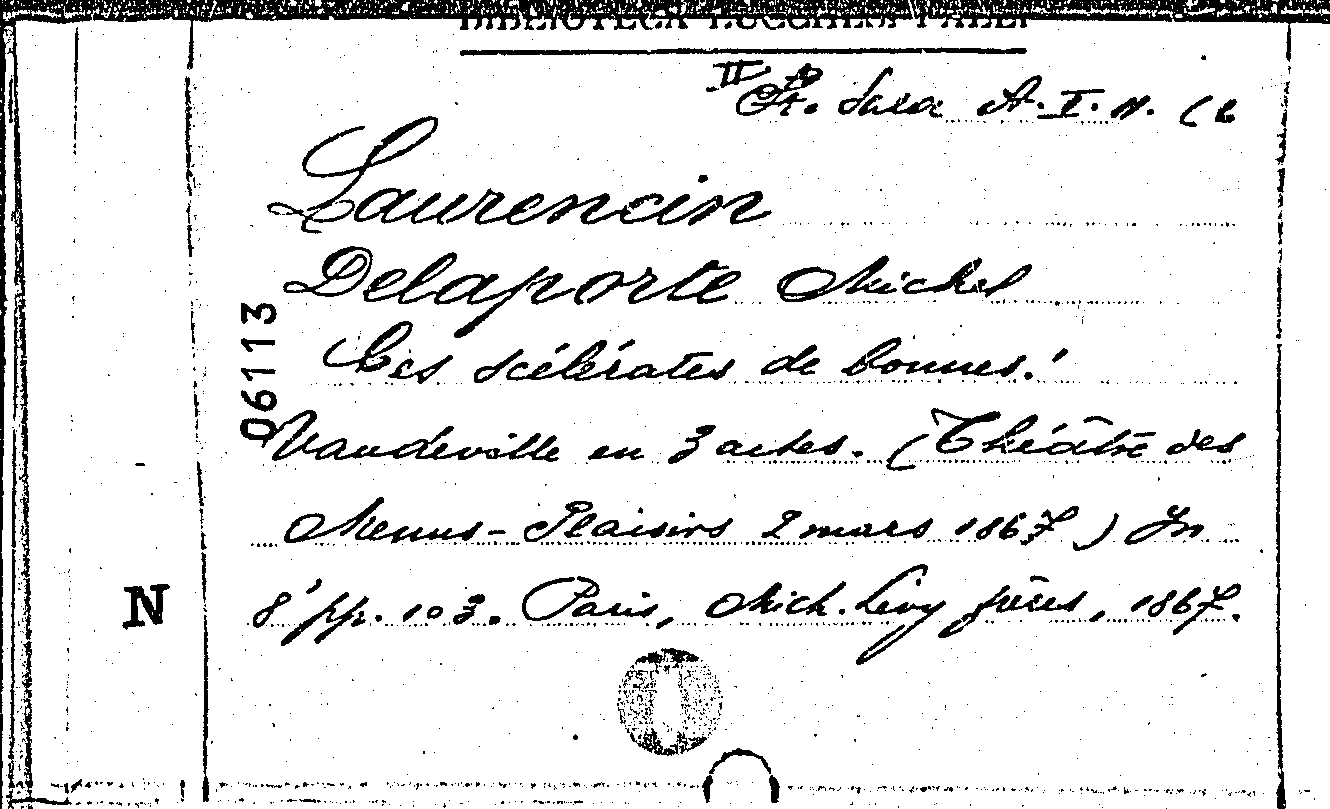 BIBLIOTECA LUCCHESI PALLI
II St. Sala A. I. 11. (6
Laurencin
Delaporte Michel
Ces scélérates de bonnes!
Vaudeville en 3 actes. (Théâtre des
Menus-Plaisirs 2 mars 1867) In
8° pp. 103. Paris, Mich. Lévy frères, 1867.
06113
N